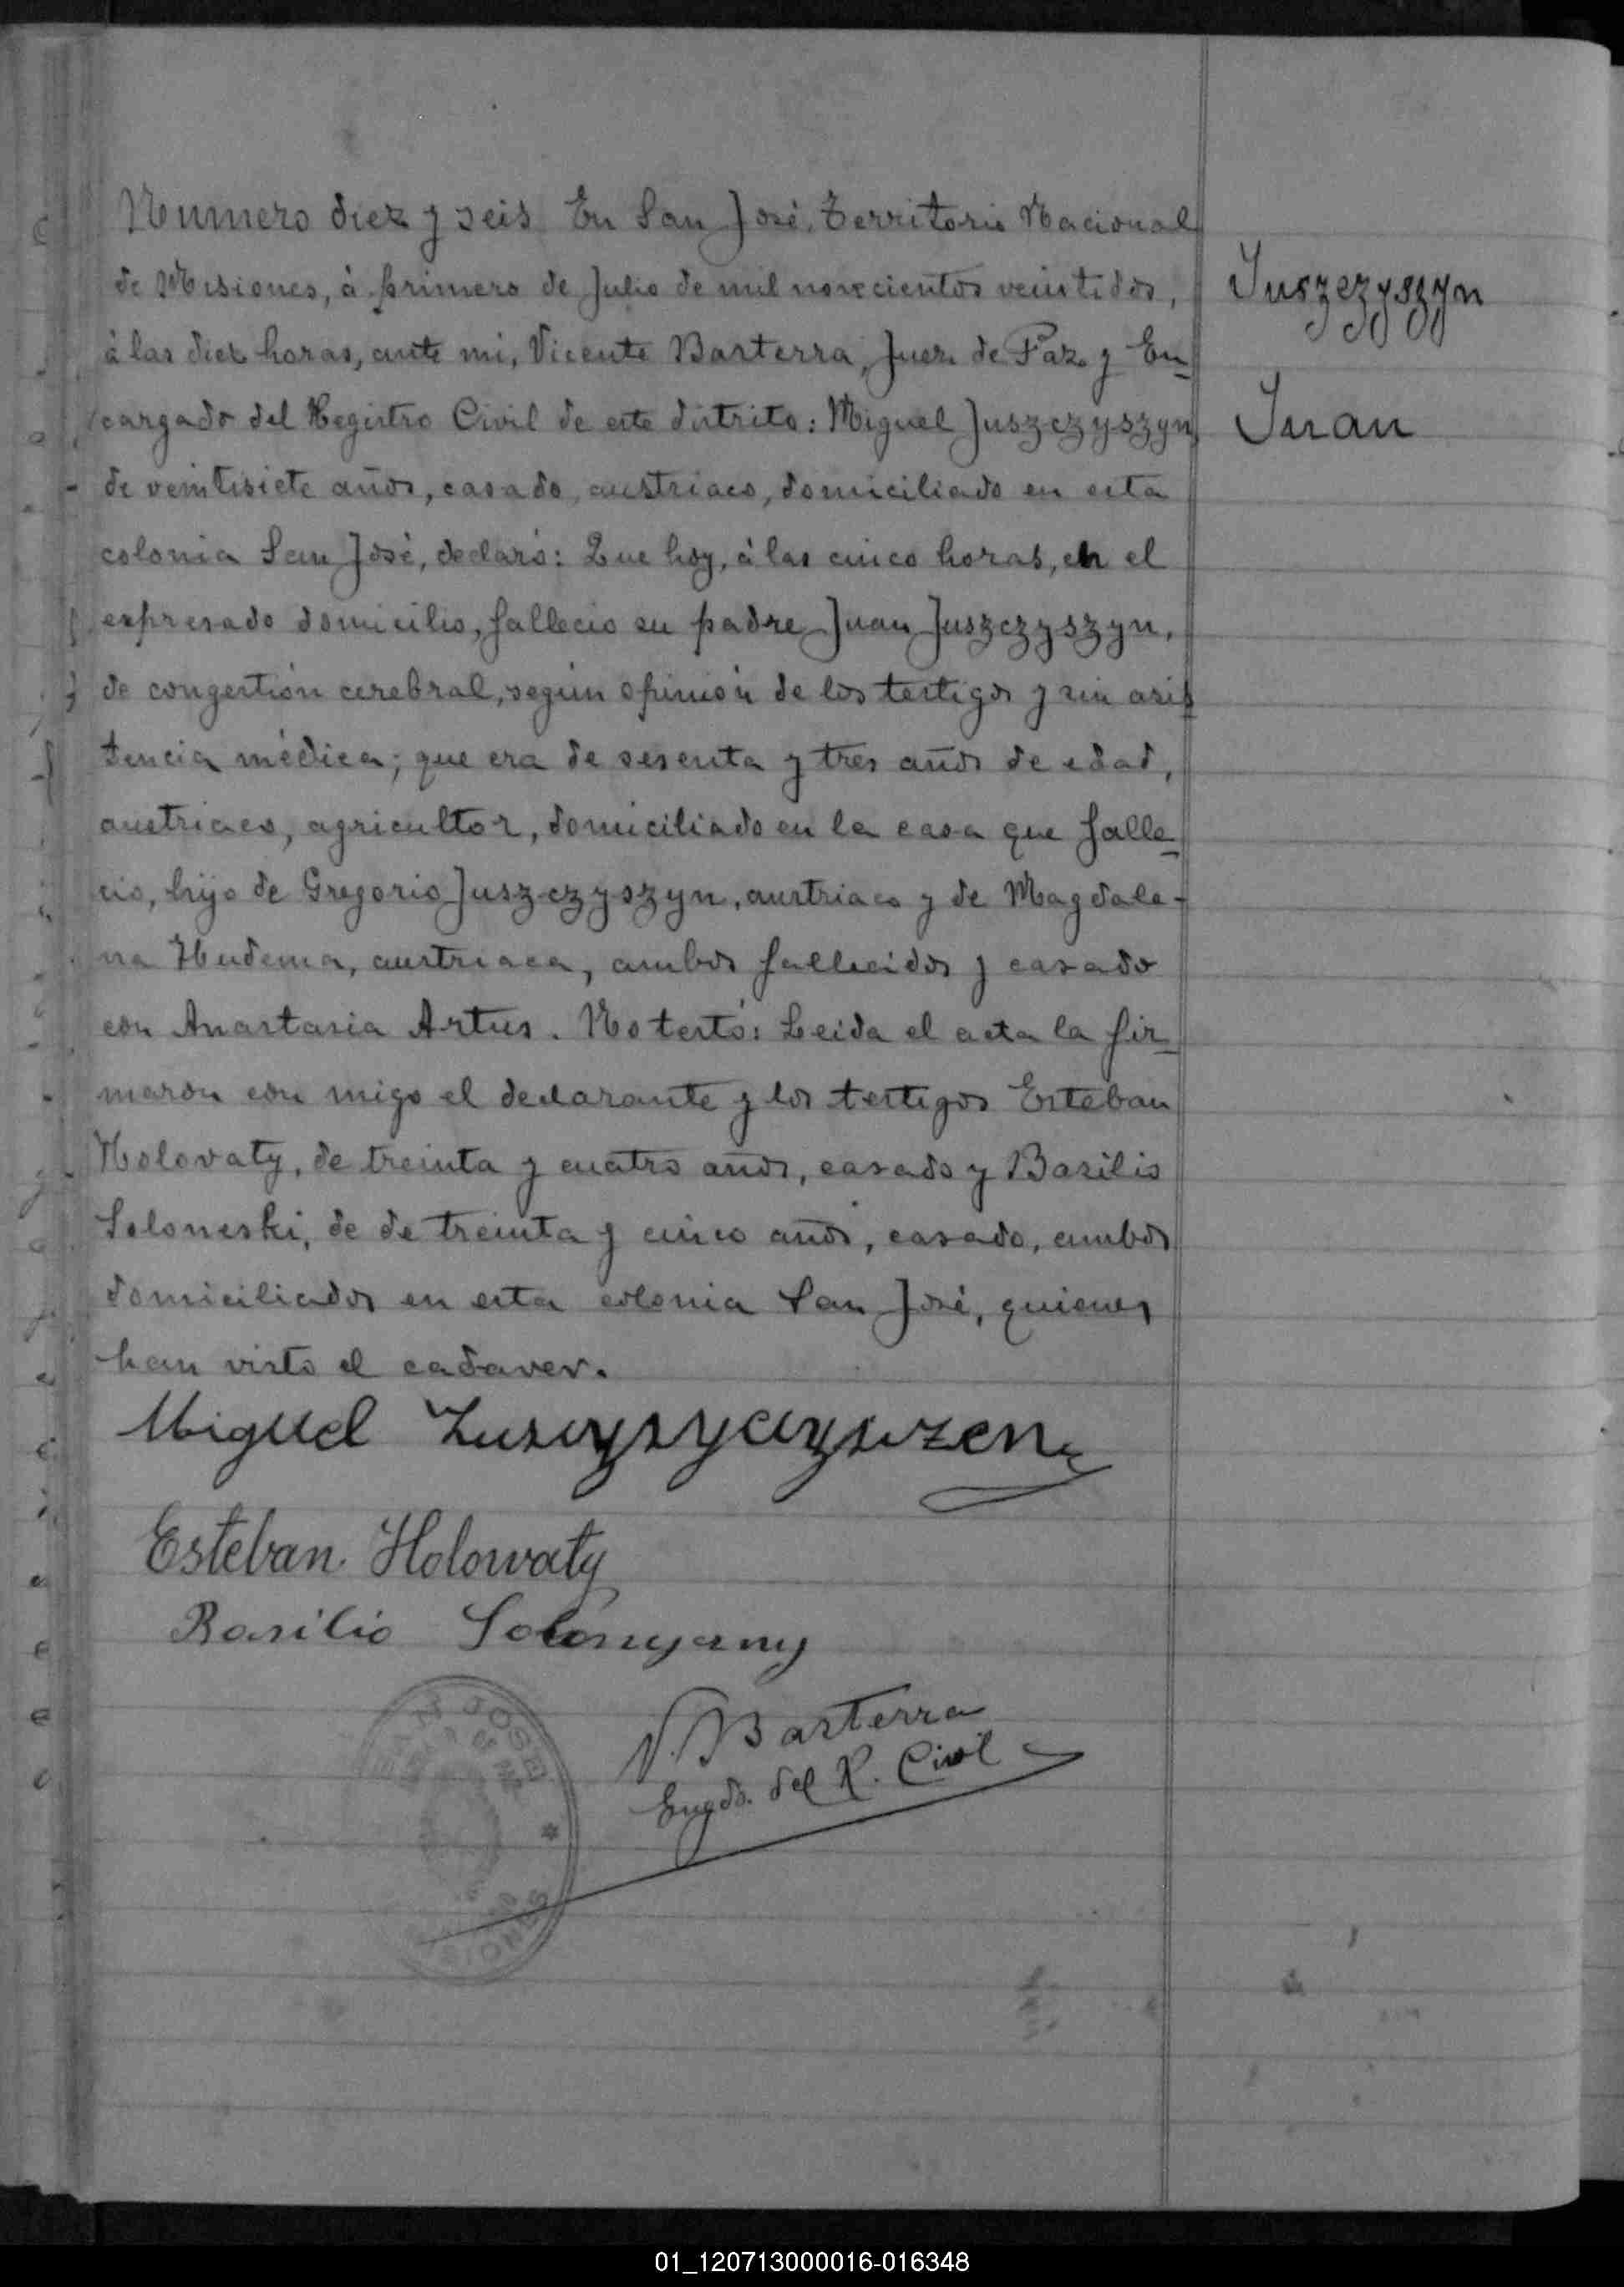 Numero diez y seis En San José, Territorio Nacional
de Misiones, à primero de Julio de mil novecientos veintidos,
à las diez horas, ante mi, Vicente Barterra, Juez de Paz y En-
cargado del Registro Civil de este distrito: Miguel Juszczyszyn,
de veintisiete años, casado, austriaco, domiciliado en esta
colonia San José, declaró: Que hoy, à las cinco horas, en el
expresado domicilio, fallecio su padre Juan Juszczyszyn,
de congestión cerebral, según opinión de los testigos y sin asis
tencia médica; que era de sesenta y tres años de edad,
austriaco, agricultor, domiciliado en la casa que falle-
cio, hijo de Gregorio Juszczyszyn, austriaco y de Magdale-
na Hudema, austriaca, ambos fallecidos y casado
con Anastasia Artus. No testó: Leida el acta la fir-
maron con migo el declarante y los testigos Esteban
Holovaty, de treinta y cuatro años, casado y Basilio
Soloneski, de de treinta y cinco años, casado, ambos
domiciliados en esta colonia San José, quienes
han visto el cadaver.
Juszczyszyn
Juan
Miguel
Esteban Holowaty
Basilio
V. Barterra
Engdo. del R. Civil
SAN JOSE
MISIONES
01_120713000016-016348